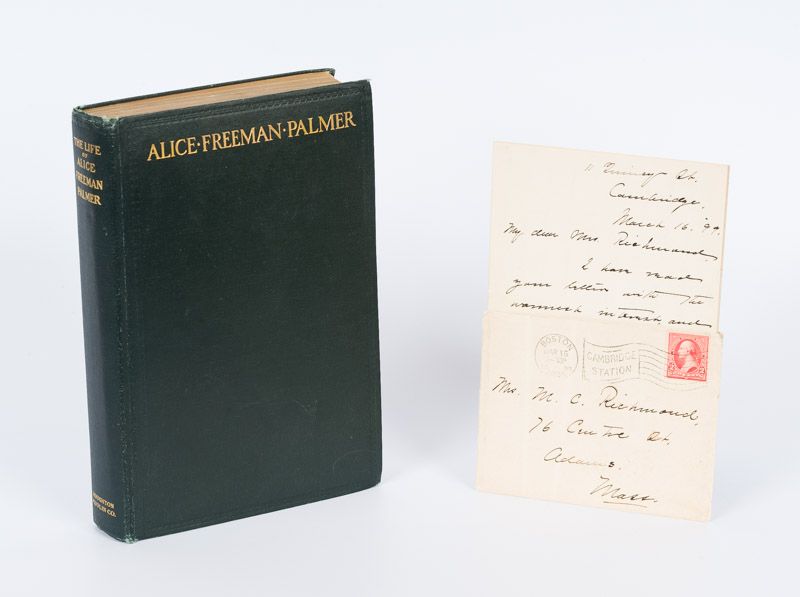 THE LIFE
OF
ALICE
FREEMAN
PALMER
HOUGHTON
MIFFLIN CO.
ALICE·FREEMAN·PALMER
11 Quincy St.
Cambridge,
March 16. '99.
My dear Mrs. Richmond,
I have read
your letter with the
warmest interest, and
BOSTON
MAR 16
CAMBRIDGE
STATION
2 2
Mrs. M. C. Richmond,
76 Centre St.
Adams.
Mass.